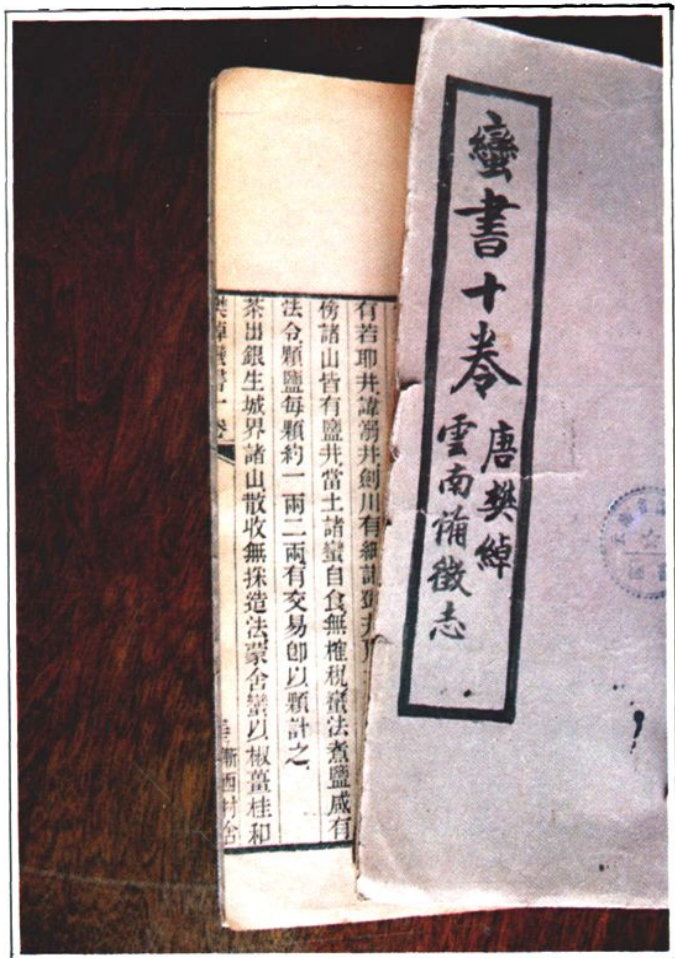 蠻書十卷
唐樊綽
雲南備徵志
有若耶井諱溺井劍川有細諾鄧井
傍諸山皆有鹽井當土諸蠻自食無榷稅蠻法煮鹽咸有
法令顆鹽每顆約一兩二兩有交易卽以顆計之
茶出銀生城界諸山散收無採造法蒙舍蠻以椒薑桂和
樊綽蠻書十卷
浙西村舍